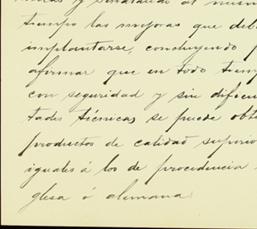 y señalando al mismo
tiempo las mejoras que deb
implantarse, concluyendo p
afirmar que en todo tiem
con seguridad y sin dificul
tades técnicas se puede obte
productos de calidad superio
iguales á los de procedencia
glesa ó alemana